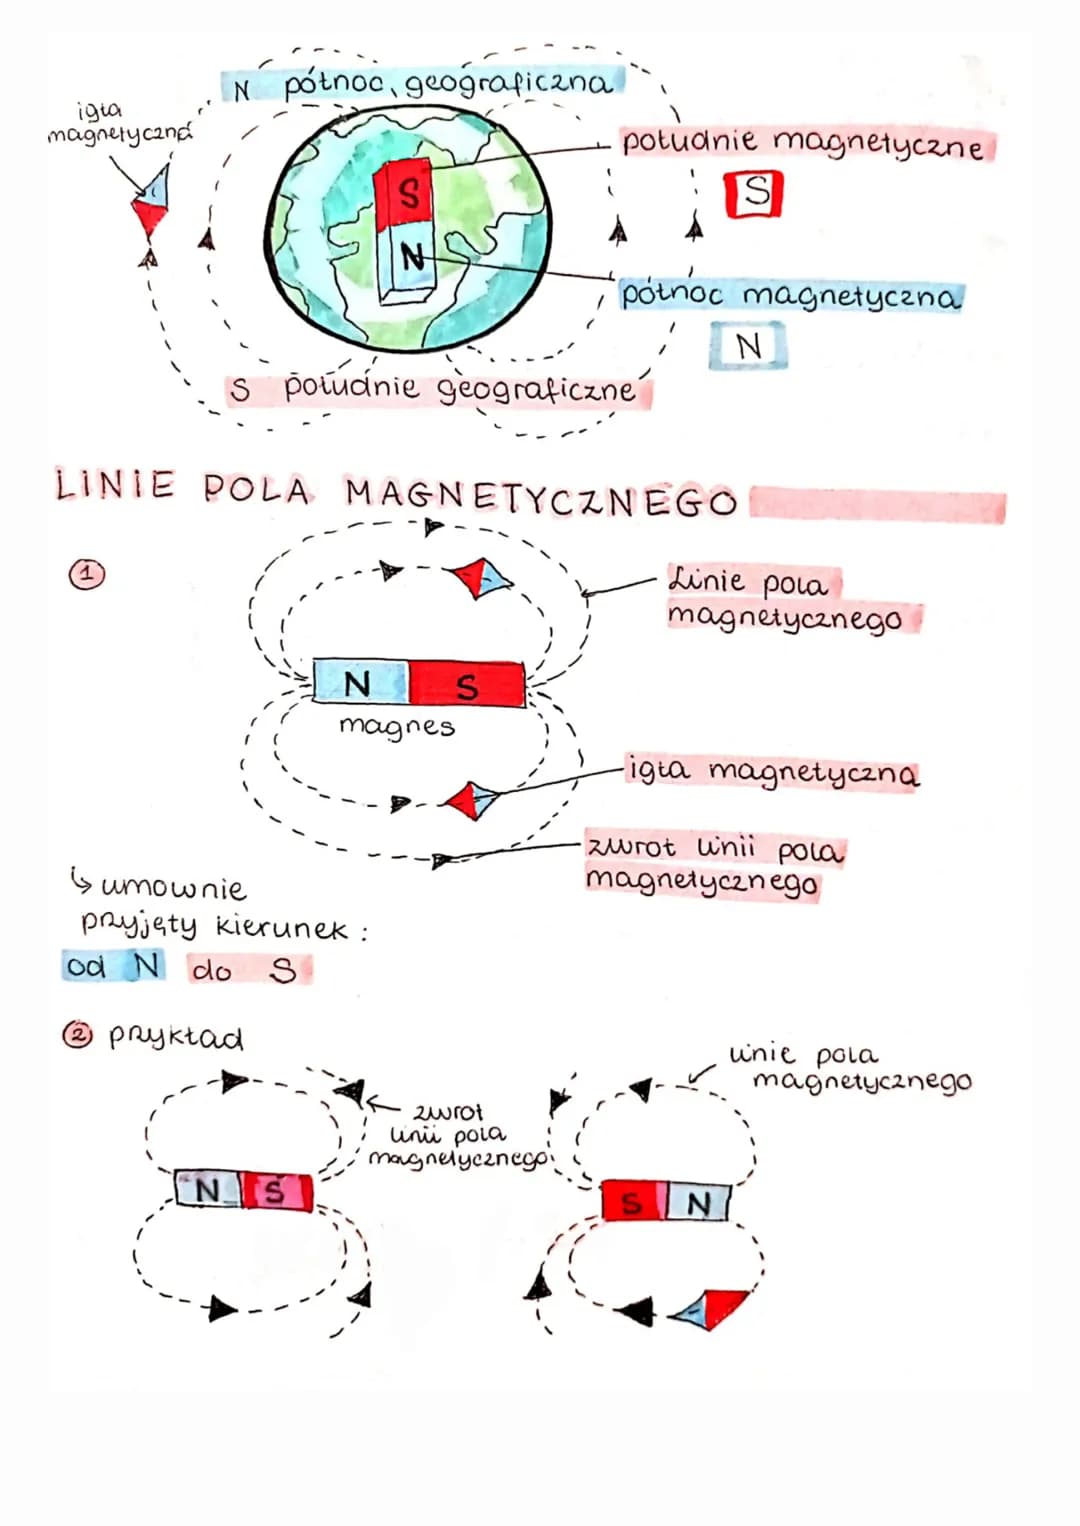 N północ geograficzna
igła
magnetyczna
południe magnetyczne
S
S
N
północ magnetyczna
N
S południe geograficzne
LINIE POLA MAGNETYCZNEGO
1
Linie pola
magnetycznego
N S
magnes
igła magnetyczna
zwrot linii pola
magnetycznego
↳ umownie
przyjęty kierunek :
od N do S
2 przykład
linie pola
magnetycznego
zwrot
linii pola
magnetycznego
N S
S N